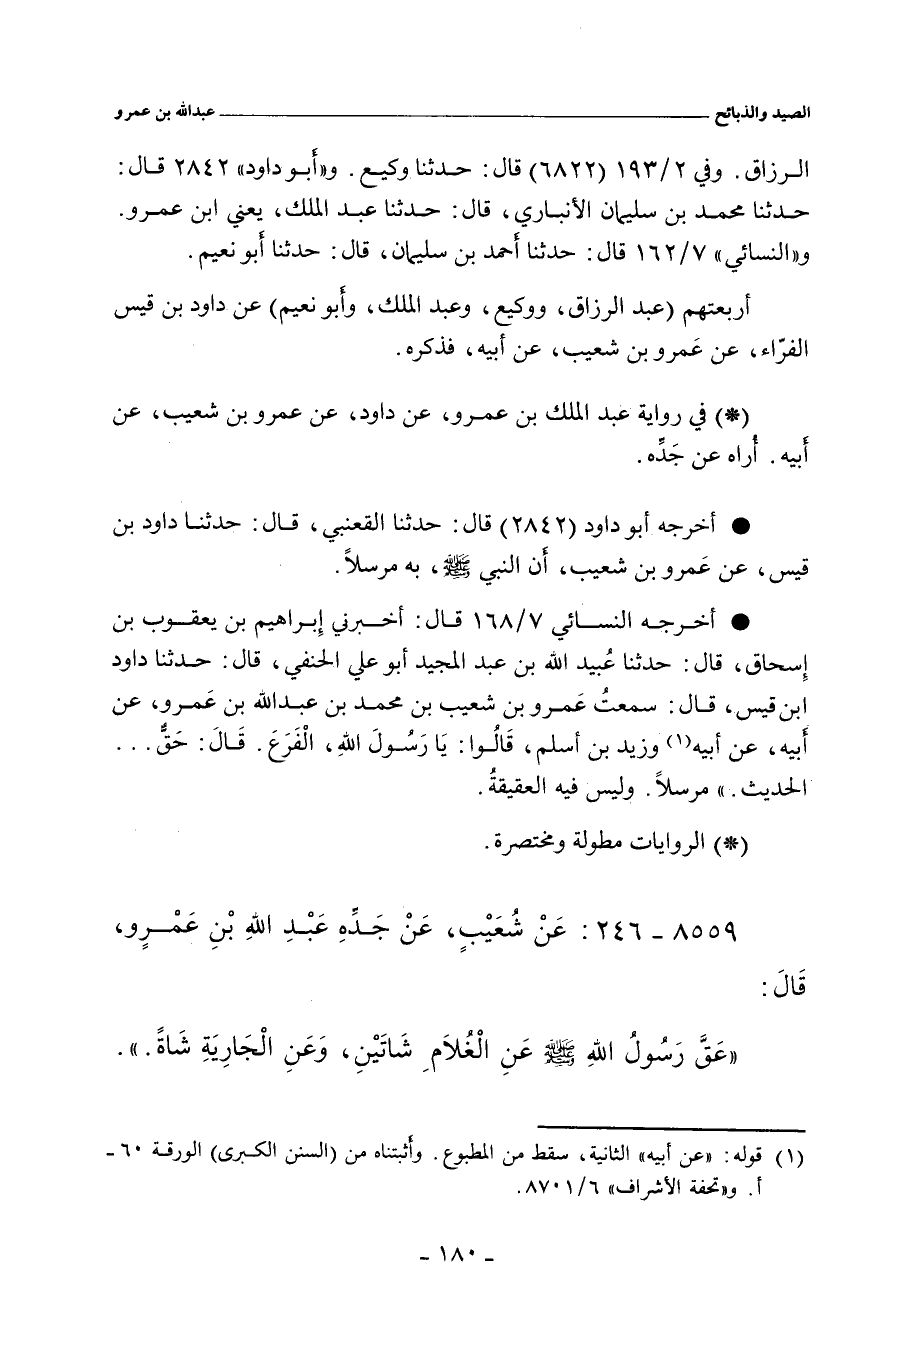 الصيد والذبائح ــــــــــ عبدالله بن عمرو
الرزاق. وفي ٢/ ١٩٣ (٦٨٢٢) قال: حدثنا وكيع. و«أَبو داود» ٢٨٤٢ قال:
حدثنا محمد بن سليمان الأنباري، قال: حدثنا عبد الملك، يعني ابن عمرو.
و«النسائي» ٧/ ١٦٢ قال: حدثنا أحمد بن سليمان، قال: حدثنا أبو نعيم.
أربعتهم (عبد الرزاق، ووكيع، وعبد الملك، وأبو نعيم) عن داود بن قيس
الفرّاء، عن عَمرو بن شعيب، عن أبيه، فذكره.
(*) في رواية عبد الملك بن عمرو، عن داود، عن عمرو بن شعيب، عن
أَبيه. أُراه عن جَدِّه.
● أخرجه أبو داود (٢٨٤٢) قال: حدثنا القعنبي، قال: حدثنا داود بن
قيس، عن عَمرو بن شعيب، أَن النبي ﷺ، به مرسلاً.
● أخرجه النسائي ٧/ ١٦٨ قال: أخبرني إِبراهيم بن يعقوب بن
إِسحاق، قال: حدثنا عُبيد الله بن عبد المجيد أبو علي الحنفي، قال: حدثنا داود
ابن قيس، قال: سمعتُ عَمرو بن شعيب بن محمد بن عبدالله بن عَمرو، عن
أَبيه، عن أبيه(١) وزيد بن أسلم، قَالُوا: يَا رَسُولَ اللهِ، الْفَرَعَ. قَالَ: حَقٌّ...
الحديث.» مرسلاً. وليس فيه العقيقةُ.
(*) الروايات مطولة ومختصرة.
٨٥٥٩ ـ ٢٤٦: عَنْ شُعَيْبٍ، عَنْ جَدِّهِ عَبْدِ اللهِ بْنِ عَمْرٍو،
قَالَ:
«عَقَّ رَسُولُ اللهِ ﷺ عَنِ الْغُلاَمِ شَاتَيْنِ، وَعَنِ الْجَارِيَةِ شَاةً.».
(١) قوله: «عن أبيه» الثانية، سقط من المطبوع. وأَثبتناه من (السنن الكبرى) الورقة ٦٠ ـ
أ. و«تحفة الأشراف» ٦/ ٨٧٠١.
ـ ١٨٠ ـ